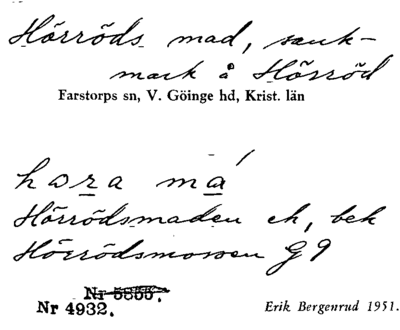 Hörröds mad, sank-
mark å Hörröd
Farstorps sn, V. Göinge hd, Krist. län
hɷra má
Hörrödsmaden ek, bek
Hörrödsmossen G 9
Nr 5800.
Nr 4932.
Erik Bergenrud 1951.